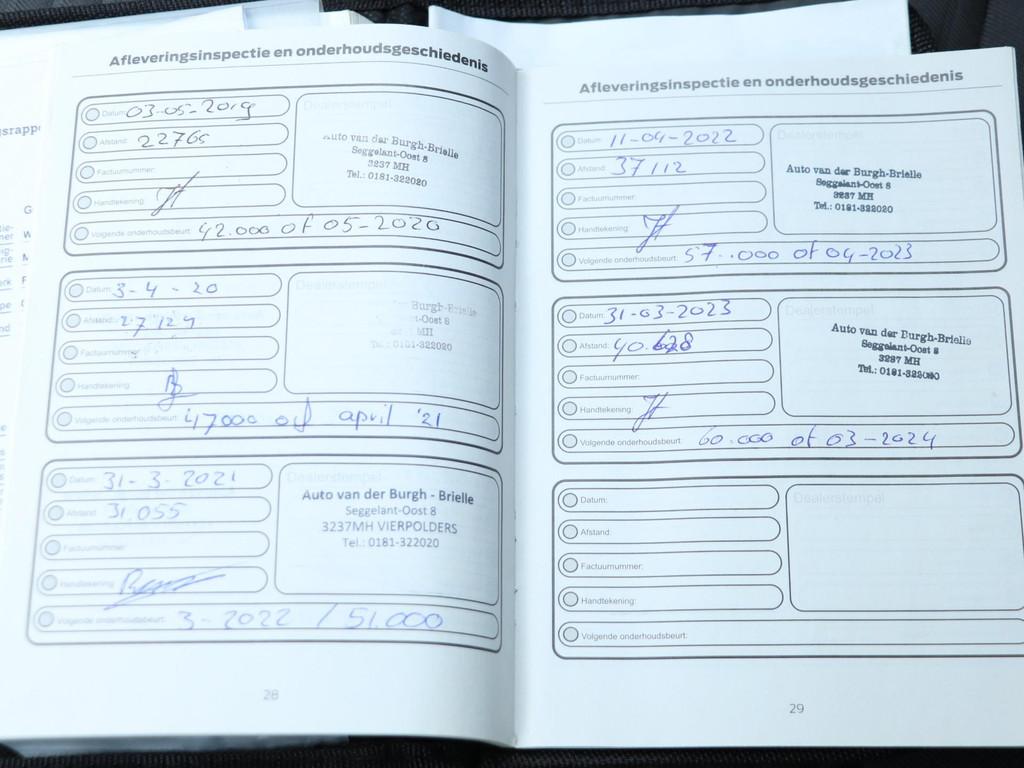 Afleveringsinspectie en onderhoudsgeschiedenis
Datum: 03-05-2019
Afstand: 22765
Factuurnummer:
Handtekening:
Volgende onderhoudsbeurt: 42.000 of 05-2020
Dealerstempel
Auto van der Burgh-Brielle
Seggelant-Oost 8
3237 MH
Tel.: 0181-322020
Datum: 3-4-20
Afstand: 27124
Factuurnummer:
Handtekening:
Volgende onderhoudsbeurt: 47000 of april '21
Dealerstempel
Burgh-Brielle
t-Oost 8
MH
: 0181-322020
Datum: 31-3-2021
Afstand: 31.055
Factuurnummer:
Handtekening:
Volgende onderhoudsbeurt: 3-2022 / 51.000
Dealerstempel
Auto van der Burgh - Brielle
Seggelant-Oost 8
3237MH VIERPOLDERS
Tel.: 0181-322020
28
Afleveringsinspectie en onderhoudsgeschiedenis
Datum: 11-04-2022
Afstand: 37112
Factuurnummer:
Handtekening:
Volgende onderhoudsbeurt: 57.000 of 04-2023
Dealerstempel
Auto van der Burgh-Brielle
Seggelant-Oost 8
3237 MH
Tel.: 0181-322020
Datum: 31-03-2023
Afstand: 40.628
Factuurnummer:
Handtekening:
Volgende onderhoudsbeurt: 60.000 of 03-2024
Dealerstempel
Auto van der Burgh-Brielle
Seggelant-Oost 8
3237 MH
Tel.: 0181-322020
Datum:
Afstand:
Factuurnummer:
Handtekening:
Volgende onderhoudsbeurt:
Dealerstempel
29